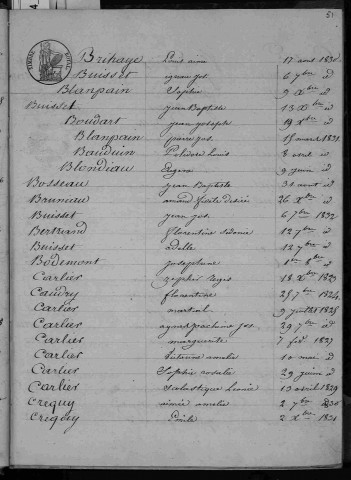 51
Brihaye Louis aimé 17 aout 1830
Buisset ignace jos. 6 7bre d
Blanpain Sophie 9 Xbre d
Buisset jean Baptiste 13 Xbre d
Boudart jean joseph 19 Xbre d
Blanpain pierre jos. 15 mars 1831
Bauduin Louis 8 avril d
Blondiau Eugène 9 juin d
Bosseau jean Baptiste 31 aout d
Bruneau amand désiré 26 Xbre d
Buisset jean jos. 6 7bre 1832
Bertrand florentine 12 7bre d
Buisset adelle 12 7bre d
Bodemont josephine d
Carlier 18 Xbre 1823
Caudry florentine 25 7bre 1824
Carlier martial 9 juillet 1825
Carlier jos. 29 7bre d
Carlier marguerite 7 1827
Carlier amelie 10 mai d
Carlier Sophie rosalie 29 juin d
Carlier scholastique 13 avril 1829
Crequy aimée amelie 2 7bre 1830
Crequy Emile 2 Xbre 1831